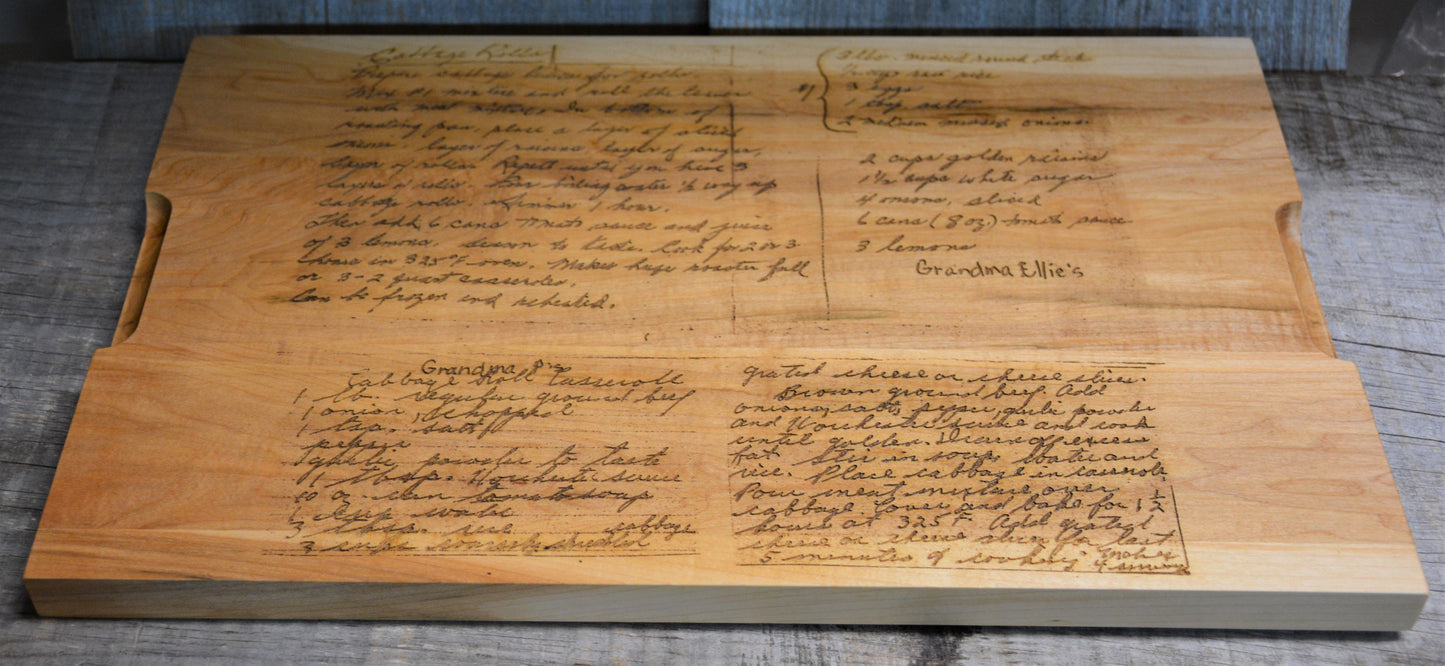 Cabbage Rolls
Prepare cabbage leaves for rolls.
Mix #1 mixture and roll the leaves
with meat mixture. In bottom of
roasting pan, place a layer of sliced
onions, layer of raisins, layer of sugar,
layer of rolls. Repeat until you have 3
layers of rolls. Pour boiling water 1/2 way up
cabbage rolls. Simmer 1 hour.
Then add 6 cans tomato sauce and juice
of 3 lemons. Season to taste. Cook for 2 or 3
hours in 325°F oven. Makes huge roaster full
or 3-2 quart casseroles.
Can be frozen and reheated.
#1
minced round steak
raw rice
3 eggs
1 tbsp salt
2 medium minced onions
2 cups golden raisins
1 1/2 cups white sugar
4 onions, sliced
6 cans (8 oz.) tomato sauce
3 lemons
Grandma Ellie's
Grandma P's
Cabbage Roll Casserole
1 lb. regular ground beef
1 onion, chopped
1 tsp. salt
pepper
garlic powder to taste
1 tbsp. sauce
10 oz. can tomato soup
1 cup water
3 tbsp. rice
3 cups shredded cabbage
grated cheese or cheese slices.
Brown ground beef. Add
onions, salt, pepper, garlic powder
and sauce and cook
until golden. Drain off excess
fat. Stir in soup, water and
rice. Place cabbage in casserole.
Pour meat mixture over
cabbage. Cover and bake for 1 1/2
hours at 325°F. Add grated
cheese or cheese slices for last
5 minutes of cooking. Makes
4 servings